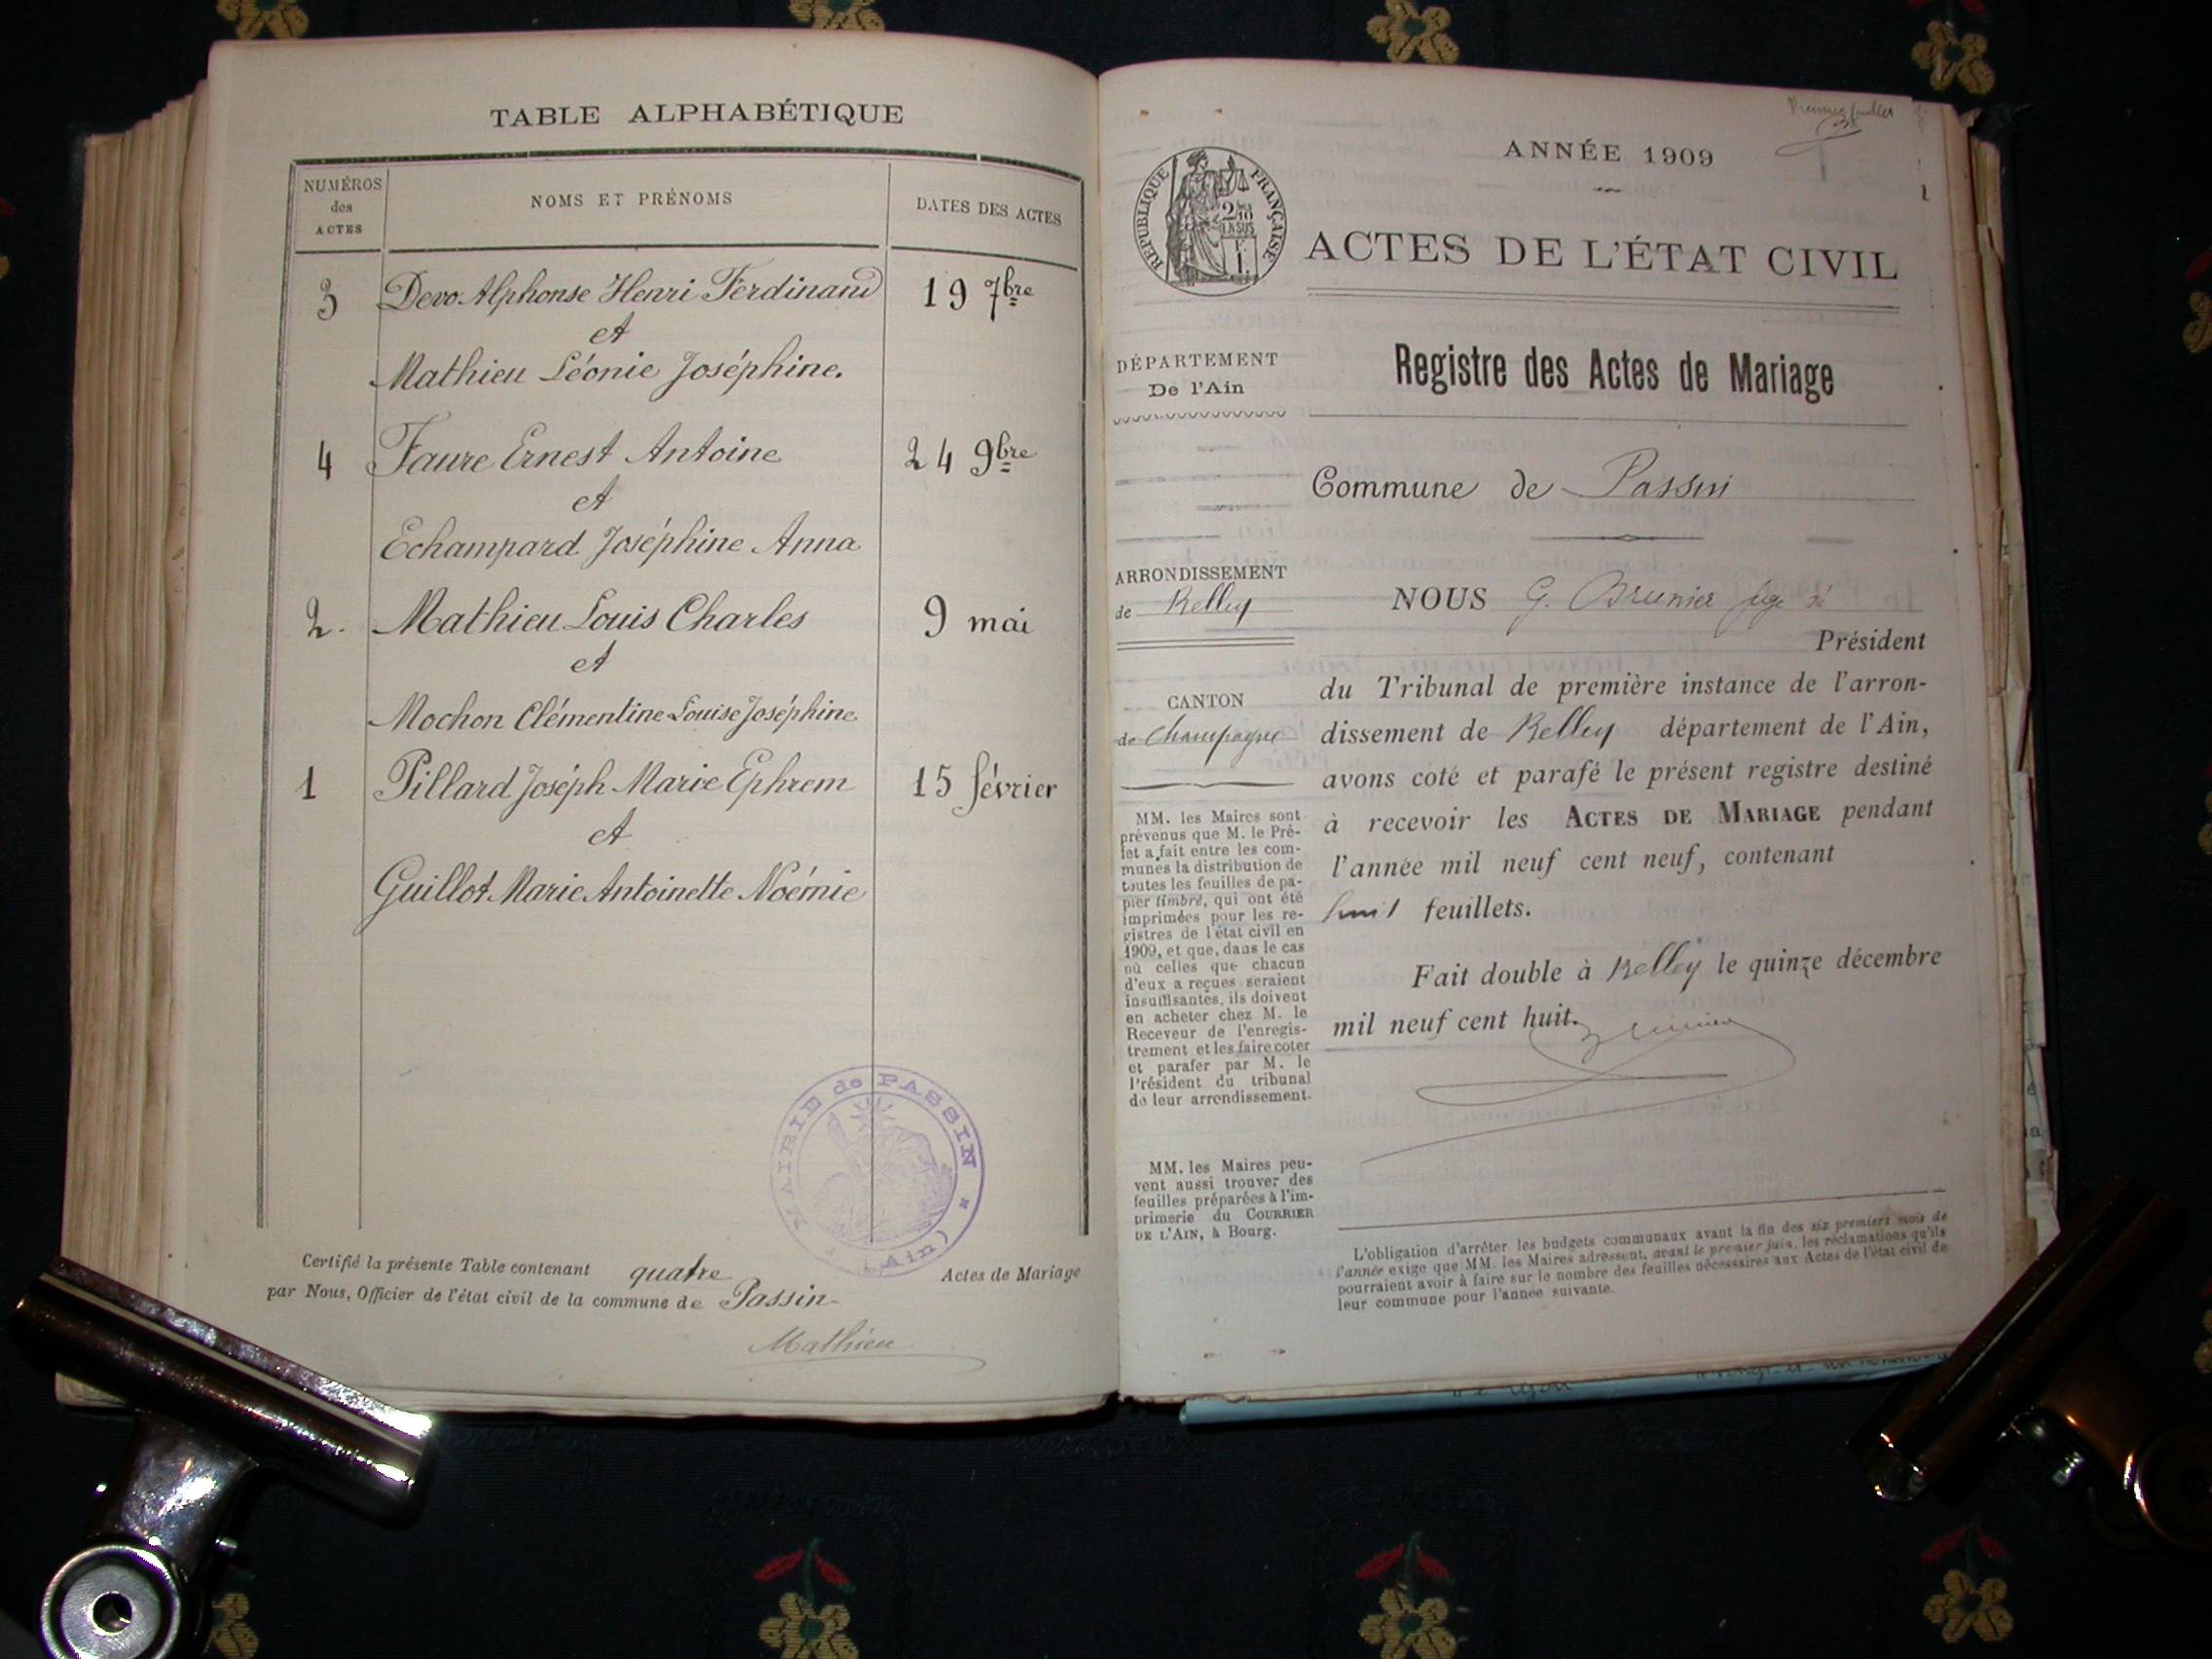 TABLE ALPHABÉTIQUE
NUMÉROS
des
ACTES
NOMS ET PRÉNOMS
DATES DES ACTES
3 Devo Alphonse Henri Ferdinand 19 7bre
et
Mathieu Léonie Joséphine.
4 Faure Ernest Antoine 24 9bre
et
Echampard Joséphine Anna
2. Mathieu Louis Charles 9 mai
et
Mochon Clémentine Louise Joséphine
1 Pillard Joséph Marie Ephrem 15 février
et
Guillot Marie Antoinette Noémie
MAIRIE de PASSIN
(Ain)
Certifié la présente Table contenant quatre Actes de Mariage
par Nous, Officier de l'état civil de la commune de Passin
Mathieu
ANNÉE 1909
1
RÉPUBLIQUE FRANÇAISE
ACTES DE L'ÉTAT CIVIL
DÉPARTEMENT
De l'Ain
ARRONDISSEMENT
de Belley
CANTON
de Champagne
MM. les Maires sont
prévenus que M. le Pré-
fet a fait entre les com-
munes la distribution de
toutes les feuilles de pa-
pier timbré, qui ont été
imprimées pour les re-
gistres de l'état civil en
1909, et que, dans le cas
où celles que chacun
d'eux a reçues seraient
insuffisantes, ils doivent
en acheter chez M. le
Receveur de l'enregis-
trement et les faire coter
et parafer par M. le
Président du tribunal
de leur arrondissement.
MM. les Maires peu-
vent aussi trouver des
feuilles préparées à l'im-
primerie du COURRIER
DE L'AIN, à Bourg.
Registre des Actes de Mariage
Commune de Passin
NOUS G. Brunier juge
Président
du Tribunal de première instance de l'arron-
dissement de Belley département de l'Ain,
avons coté et parafé le présent registre destiné
à recevoir les ACTES DE MARIAGE pendant
l'année mil neuf cent neuf, contenant
huit feuillets.
Fait double à Belley le quinze décembre
mil neuf cent huit.
Brunier
L'obligation d'arrêter les budgets communaux avant la fin des six premiers mois de
l'année exige que MM. les Maires adressent, avant le premier juin, les réclamations qu'ils
pourraient avoir à faire sur le nombre des feuilles nécessaires aux Actes de l'état civil de
leur commune pour l'année suivante.